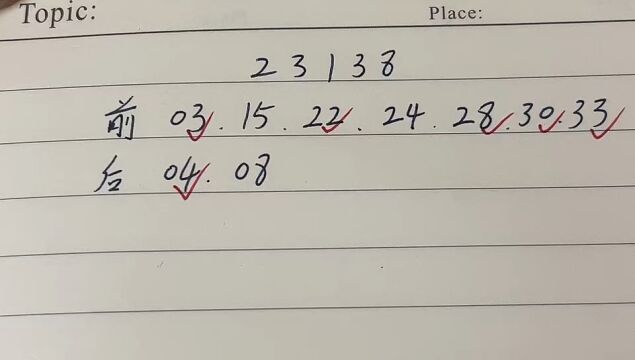 Topic: Place:
23138
前 03.15.22.24.28.30.33
后 04.08